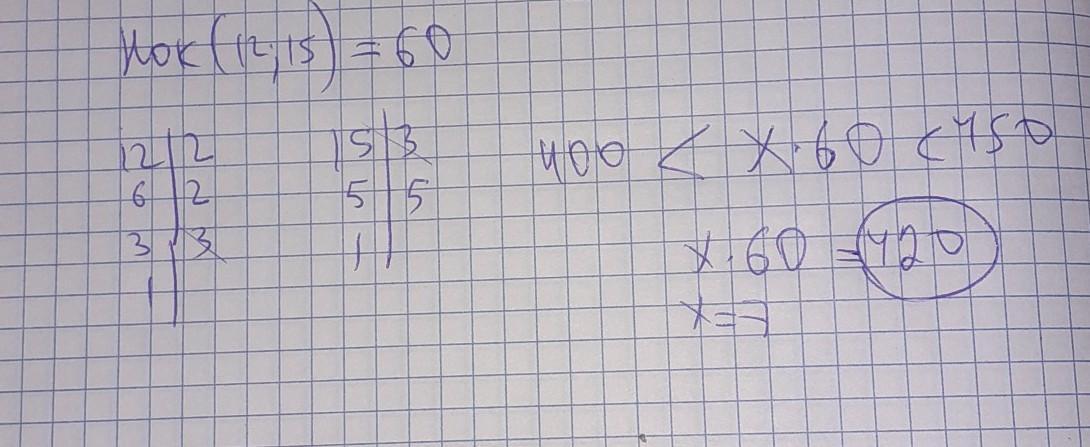 НОК(12;15) = 60
12|2
6|2
3|3
1|
15|3
5|5
1|
400 < x·60 < 450
x·60 = 420
x=7